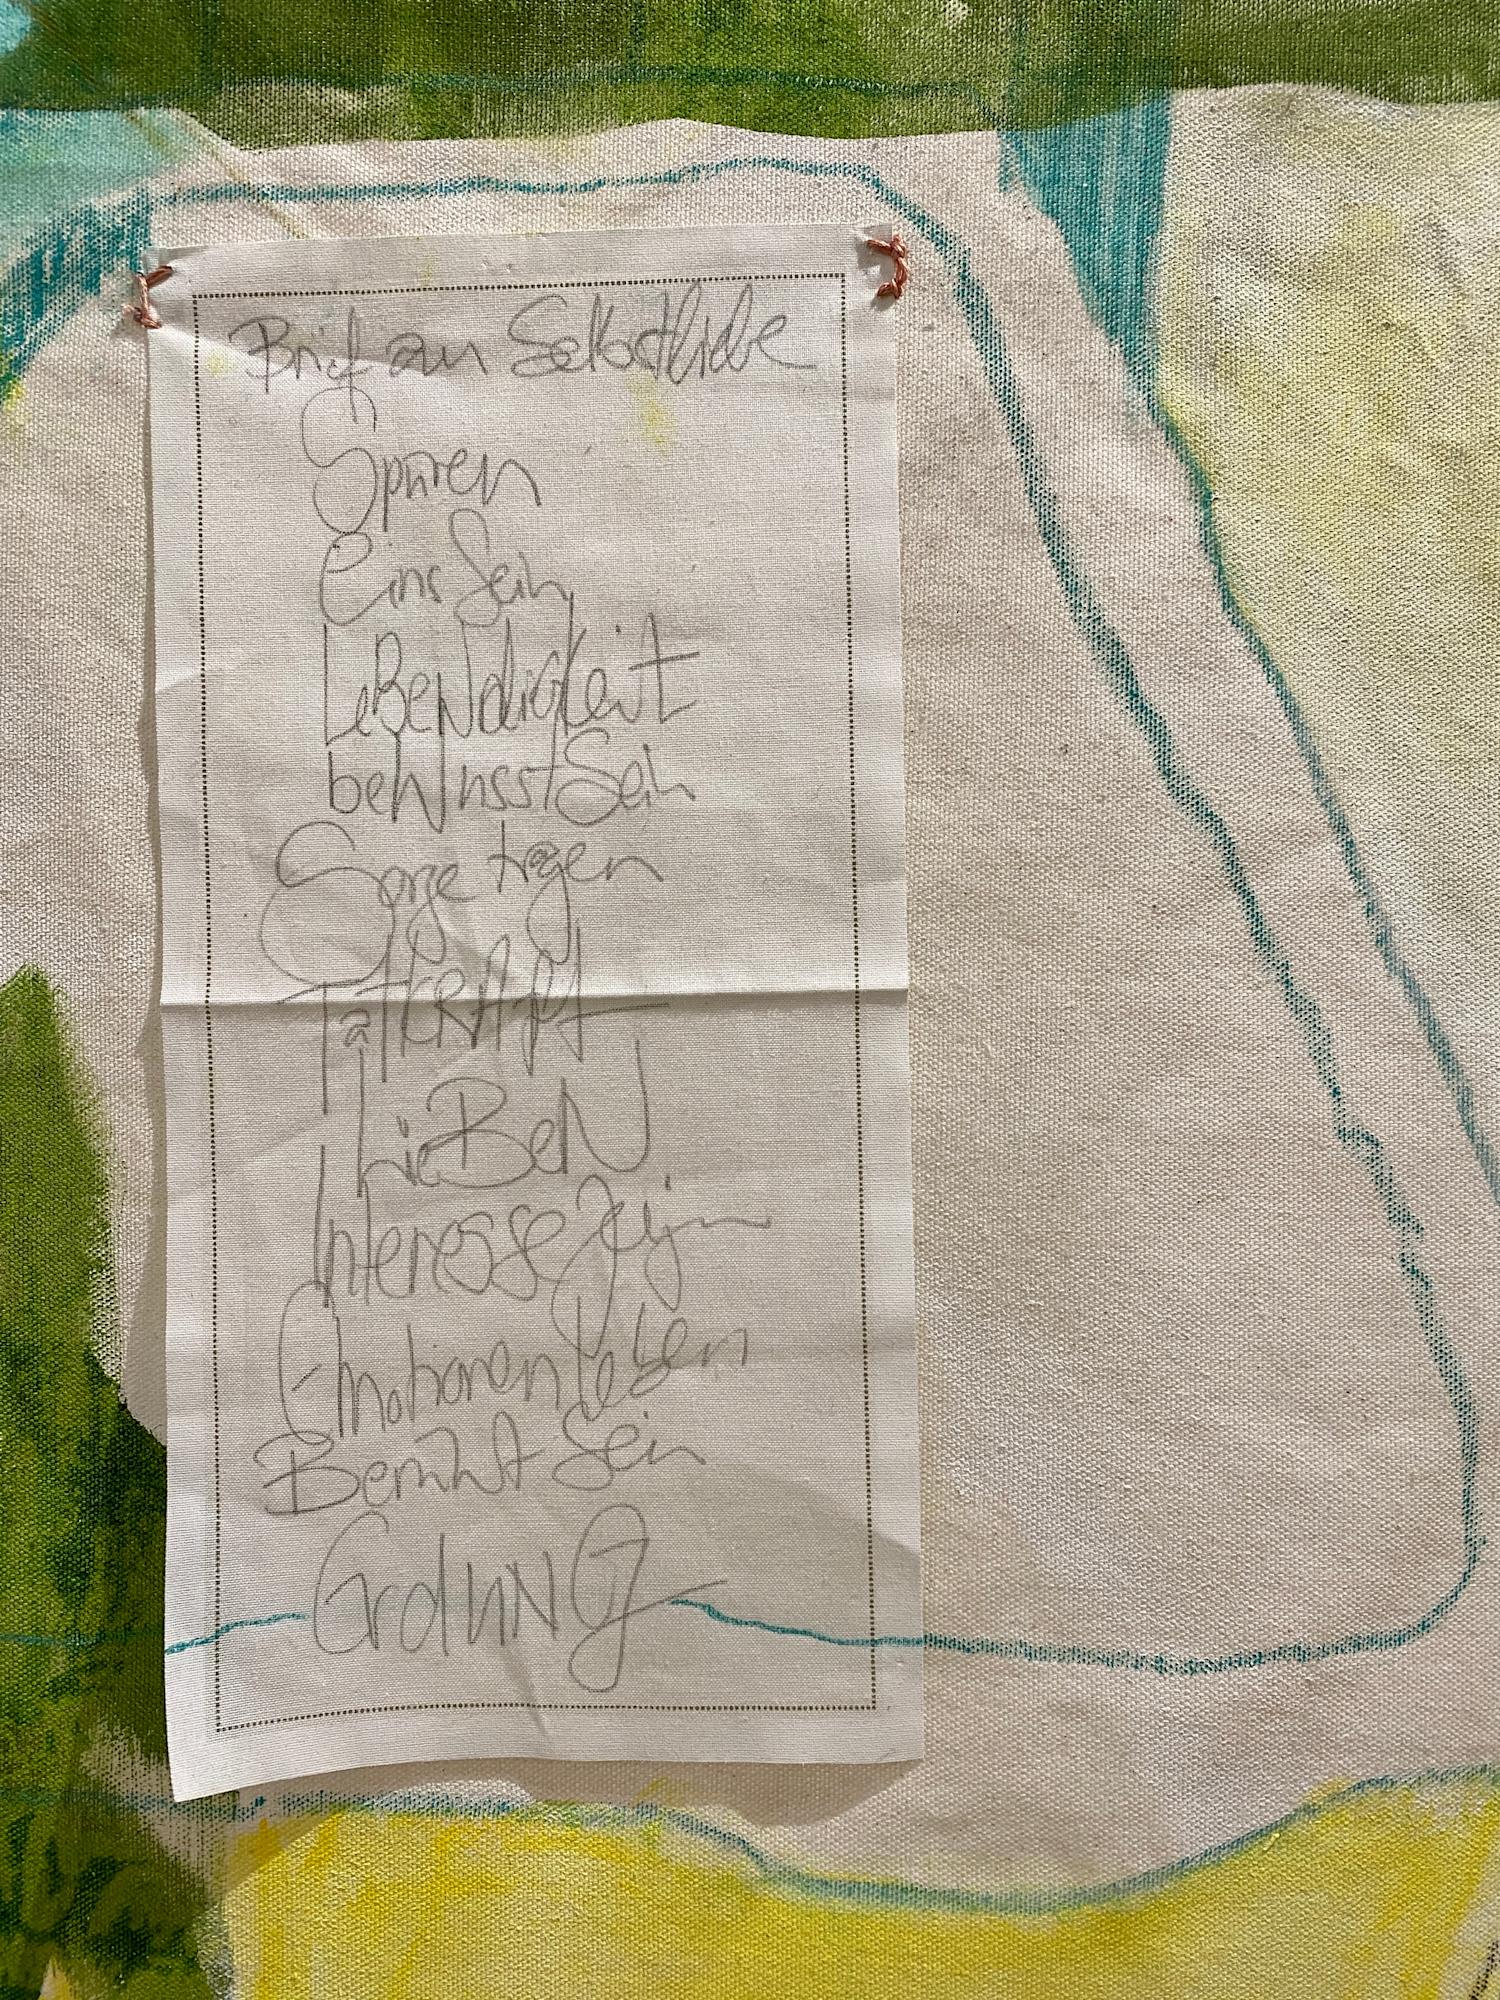 Brief zur Selbstliebe
Spüren
Eins Sein
LeBeNdigkeit
beWusstSein
Sorge tragen
TatKRAft
LieBeN
Interesse zeigen
Emotionen leben
Berührt Sein
ErduNG